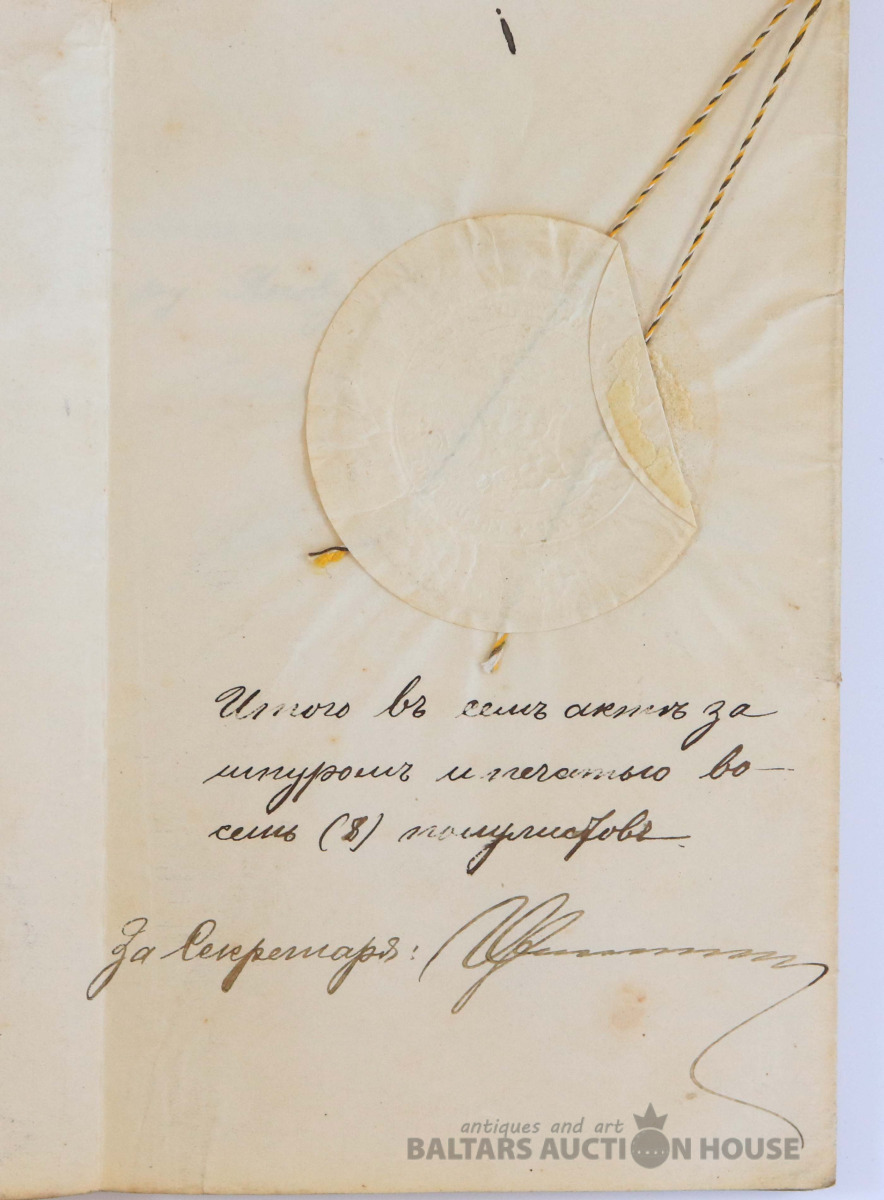 Итого въ семъ актѣ за
шнуромъ и печатью во-
семь (8) полулистовъ
За Секретаря:
antiques and art
BALTARS AUCTION HOUSE